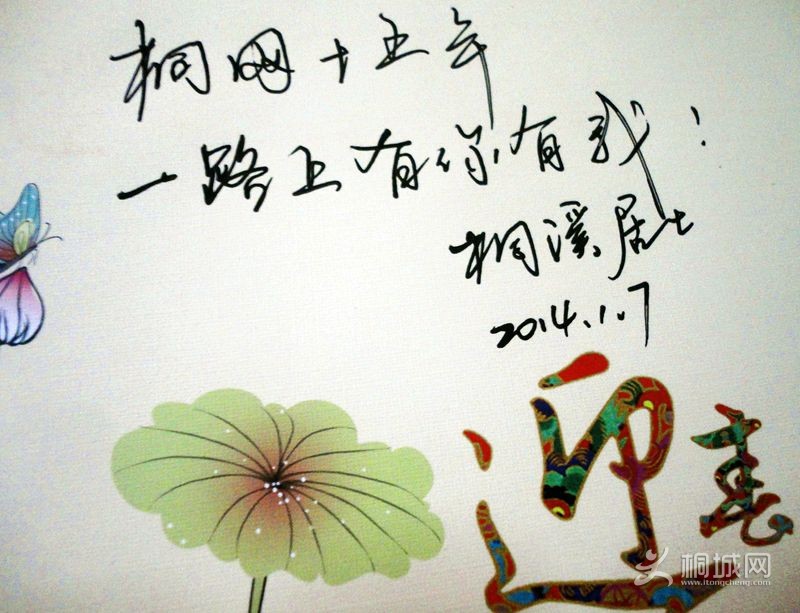 桐网十五年
一路上有你有我！
桐溪居士
2014.1.7
迎春
桐城网
www.itongcheng.com